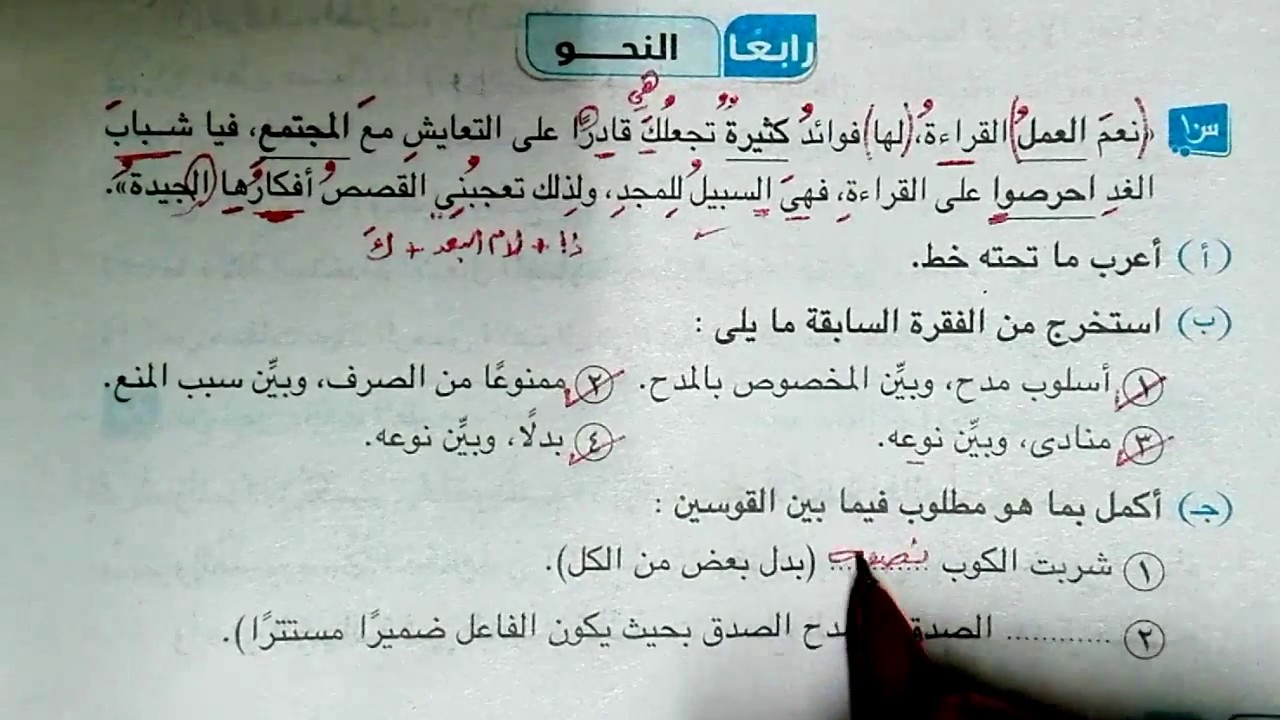 رابعًا النحـــو
س١ «نعمَ العملُ القراءةُ، (لها) فوائدُ كثيرةٌ تجعلكَ قادرًا على التعايشِ معَ المجتمعِ، فيا شـبابَ
هي
الغدِ احرصوا على القراءةِ، فهيَ السبيلُ للمجدِ، ولذلك تعجبُنِي القصصُ أفكارُها الجيدة».
ذا + لام البعد + ك
(أ) أعرب ما تحته خط.
(ب) استخرج من الفقرة السابقة ما يلى :
١ أسلوب مدح، وبيِّن المخصوص بالمدح. ٢ ممنوعًا من الصرف، وبيِّن سبب المنع.
٣ منادى، وبيِّن نوعه. ٤ بدلًا، وبيِّن نوعه.
(جـ) أكمل بما هو مطلوب فيما بين القوسين :
١ شربت الكوب ........ (بدل بعض من الكل).
٢ ............ الصدق دح الصدق بحيث يكون الفاعل ضميرًا مستترًا).